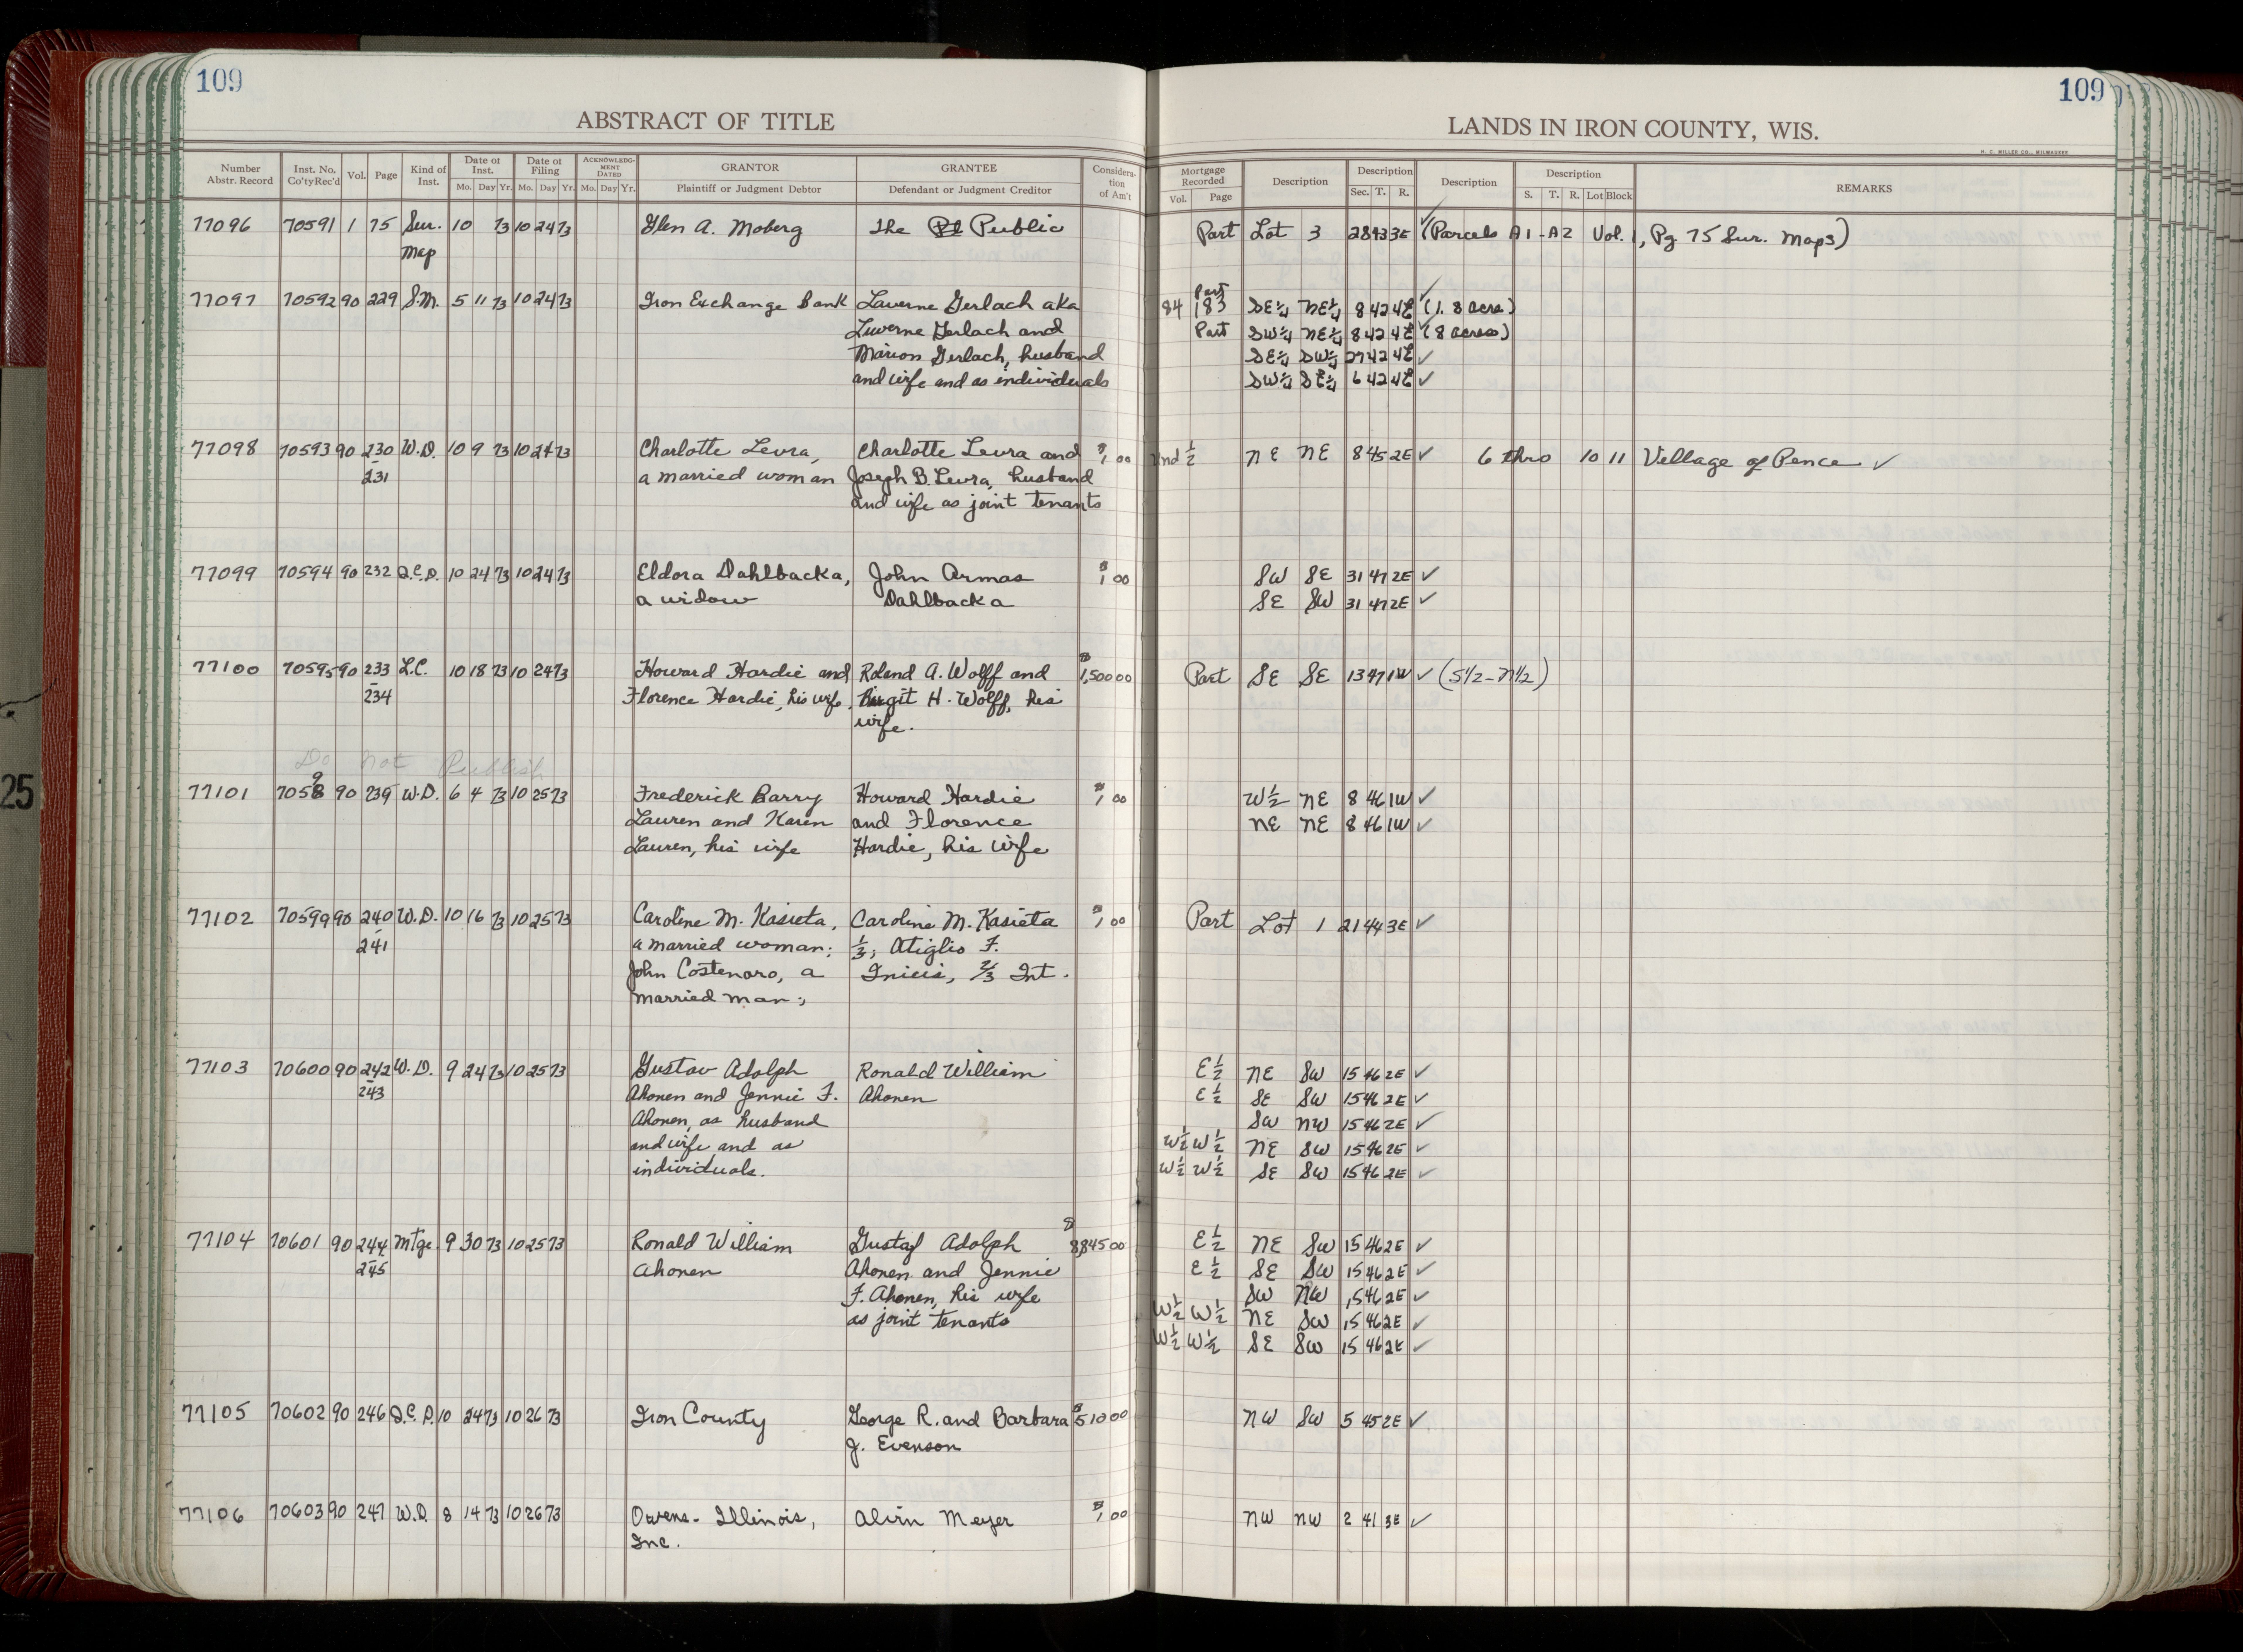 109
ABSTRACT OF TITLE
Number Abstr. Record | Inst. No. Co'ty Rec'd | Vol. | Page | Kind of Inst. | Date of Inst. Mo. Day Yr. | Date of Filing Mo. Day Yr. | ACKNOWLEDGMENT DATED Mo. Day Yr. | GRANTOR Plaintiff or Judgment Debtor | GRANTEE Defendant or Judgment Creditor | Consideration of Am't
109
LANDS IN IRON COUNTY, WIS.
H. C. MILLER CO., MILWAUKEE
Mortgage Recorded Vol. Page | Description | Description Sec. T. R. | Description | Description S. T. R. Lot Block | REMARKS
77096 70591 1 75 Sur. 10 73 10 24 73 Glen A. Moberg The Public Part Lot 3 28 43 3E ✓ (Parcels A1-A2 Vol. 1, Pg. 75 Sur. Maps)
Map
Part
77097 70592 90 229 S.M. 5 11 73 10 24 73 Iron Exchange Bank Laverne Gerlach aka 84 183 SE¼ NE¼ 8 42 4E ✓ (1.8 acre)
Luverne Gerlach and Part SW¼ NE¼ 8 42 4E ✓ (8 acres)
Marion Gerlach, husband SE¼ SW¼ 27 42 4E ✓
and wife and as individuals SW¼ SE¼ 6 42 4E ✓
77098 70593 90 230 W.D. 10 9 73 10 24 73 Charlotte Levra, Charlotte Levra and $1.00 Und ½ NE NE 8 45 2E ✓ 6 thro 10 11 Village of Pence ✓
-231 a married woman Joseph B. Levra, husband
and wife as joint tenants
77099 70594 90 232 Q.C.D. 10 24 73 10 24 73 Eldora Dahlbacka, John Armas $1.00 SW SE 31 47 2E ✓
a widow Dahlbacka SE SW 31 47 2E ✓
77100 70595 90 233 L.C. 10 18 73 10 24 73 Howard Hardie and Roland A. Wolff and $1,500 00 Part SE SE 13 47 1W ✓ (S½-N½)
-234 Florence Hardie, his wife. Birgit H. Wolff, his
wife.
Do Not Publish
9
77101 7058 90 239 W.D. 6 4 73 10 25 73 Frederick Barry Howard Hardie $1.00 W½ NE 8 46 1W ✓
Lauren and Karen and Florence NE NE 8 46 1W ✓
Lauren, his wife Hardie, his wife
77102 70599 90 240 W.D. 10 16 73 10 25 73 Caroline M. Kasieta, Caroline M. Kasieta $1.00 Part Lot 1 21 44 3E ✓
-241 a married woman; ⅓; Atiglio F.
John Costenaro, a ⅔ Int.
married man;
77103 70600 90 242 W.D. 9 24 73 10 25 73 Gustav Adolph Ronald William E½ NE SW 15 46 2E ✓
-243 Ahonen and Jennie F. Ahonen E½ SE SW 15 46 2E ✓
Ahonen, as husband SW NW 15 46 2E ✓
and wife and as W½ W½ NE SW 15 46 2E ✓
individuals. W½ W½ SE SW 15 46 2E ✓
77104 70601 90 244 Mtge. 9 30 73 10 25 73 Ronald William Gustaf Adolph $8,845 00 E½ NE SW 15 46 2E ✓
-245 Ahonen Ahonen and Jennie E½ SE SW 15 46 2E ✓
F. Ahonen, his wife SW NW 15 46 2E ✓
as joint tenants W½ W½ NE SW 15 46 2E ✓
W½ W½ SE SW 15 46 2E ✓
77105 70602 90 246 Q.C.D. 10 24 73 10 26 73 Iron County George R. and Barbara $510 00 NW SW 5 45 2E ✓
J. Evenson
77106 70603 90 247 W.D. 8 14 73 10 26 73 Owens-Illinois, Alvin Meyer $1.00 NW NW 2 41 3E ✓
Inc.
25